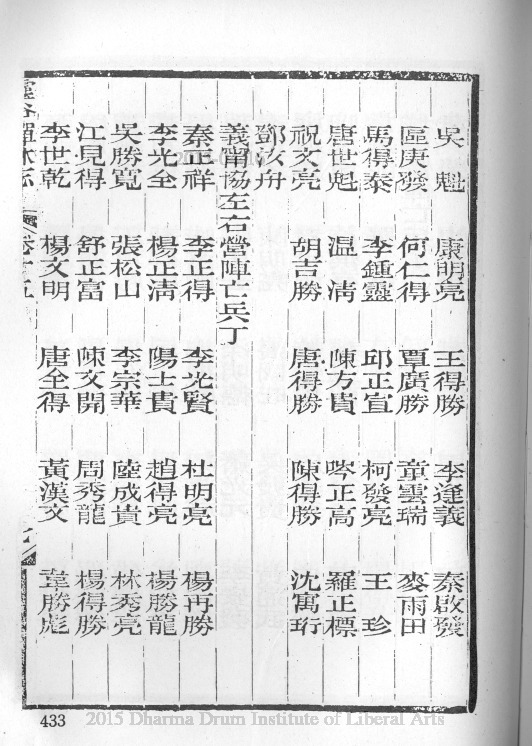 吳　魁　康明亮　王得勝　李逢義　秦啟發
區庚發　何仁得　覃廣勝　章雲瑞　麥雨田
馬得泰　李鍾靈　邱正宣　柯發亮　王　珍
唐世魁　溫　淸　陳方貴　岑正高　羅正標
祝文亮　胡吉勝　唐得勝　陳得勝　沈寓珩
鄧汝舟
義甯協左右營陣亡兵丁
秦正祥　李正得　李光賢　杜明亮　楊再勝
李光全　楊正淸　陽士貴　趙得亮　楊勝龍
吳勝寬　張松山　李宗華　陸成貴　林秀亮
江見得　舒正富　陳文開　周秀龍　楊得勝
李世乾　楊文明　唐全得　黃漢文　韋勝彪
卷十五
433
2015 Dharma Drum Institute of Liberal Arts